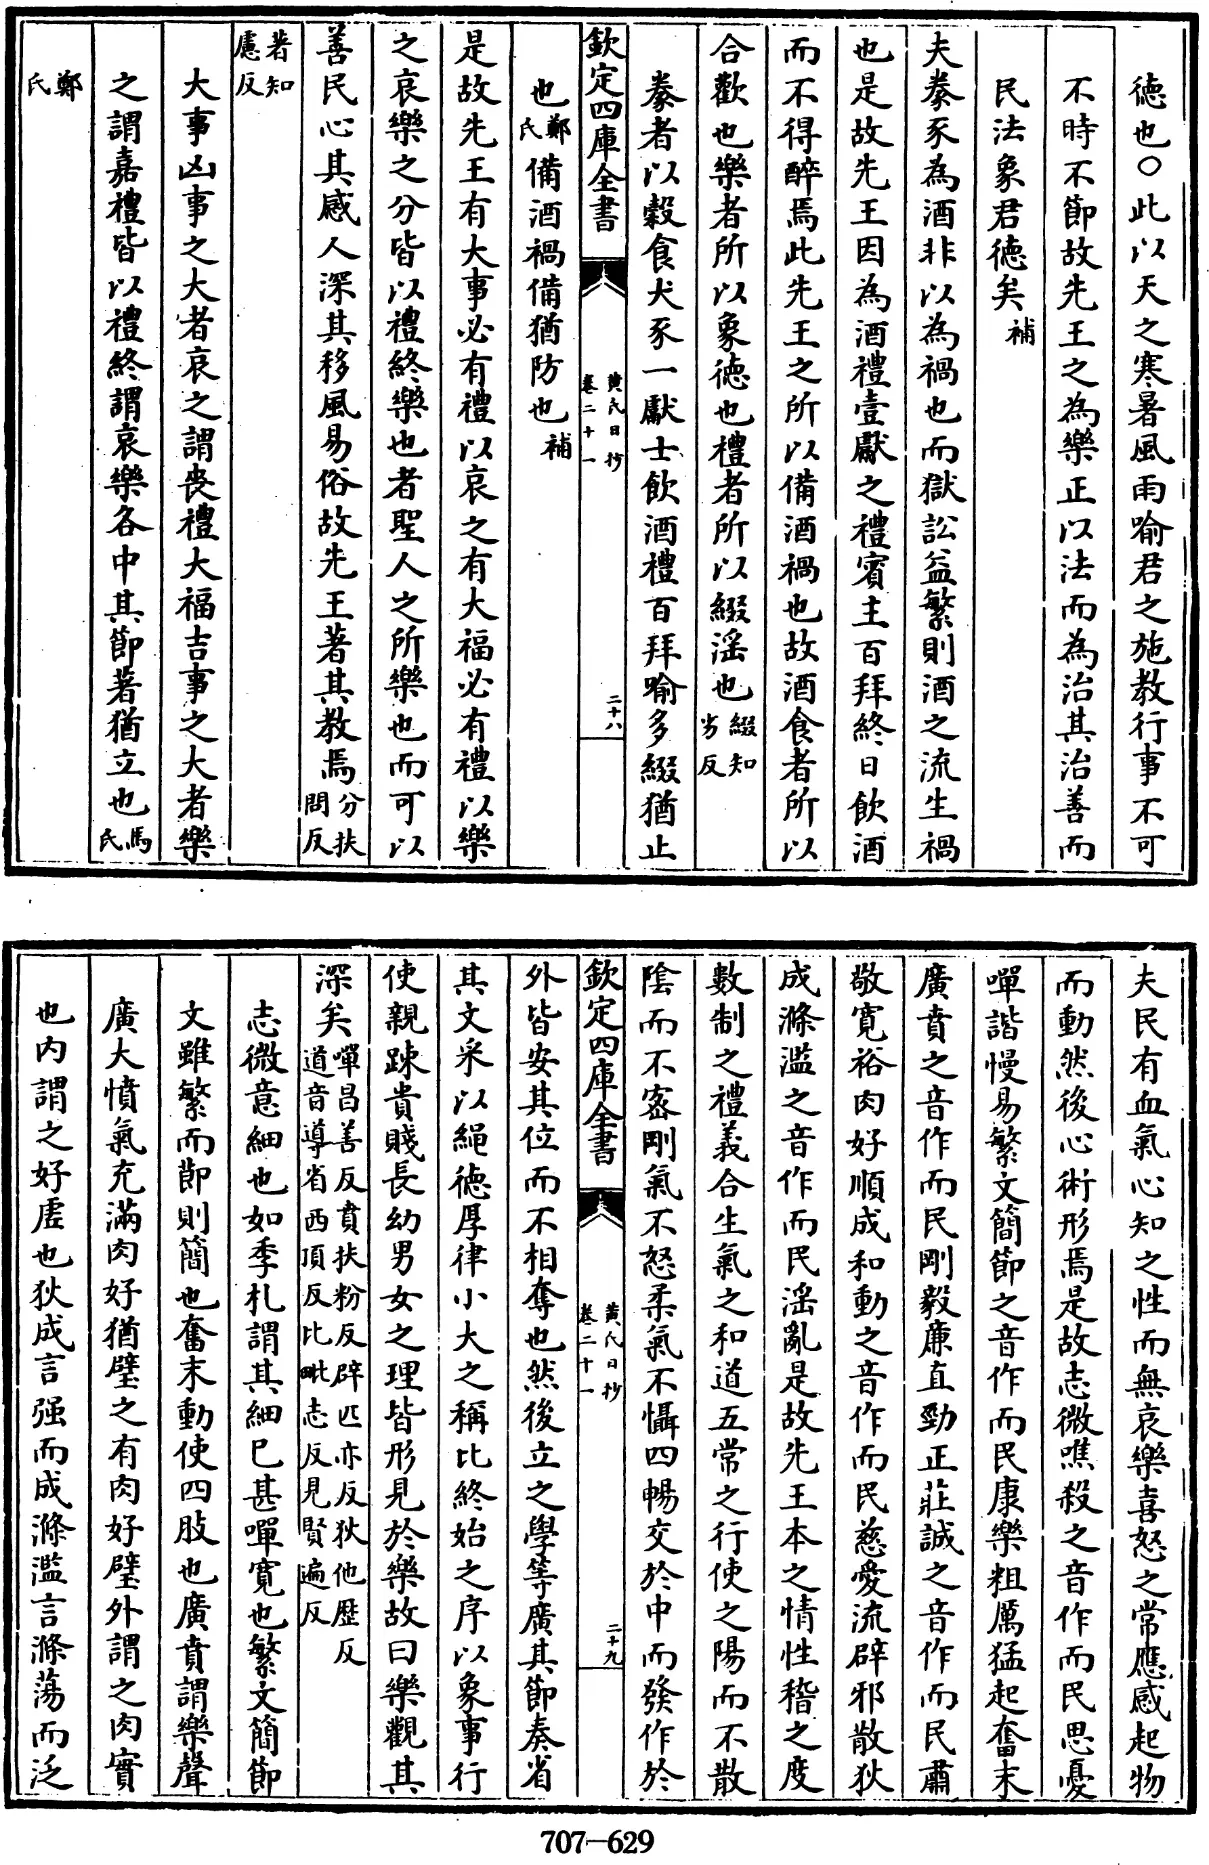 德也○此以天之寒暑風雨喻君之施教行事不可
不時不節故先王之為樂正以法而為治其治善而
民法象君德矣補
夫豢豕為酒非以為禍也而獄訟益繁則酒之流生禍
也是故先王因為酒禮壹獻之禮賓主百拜終日飲酒
而不得醉焉此先王之所以備酒禍也故酒食者所以
合歡也樂者所以象德也禮者所以綴淫也綴知
劣反
豢者以穀食犬豕一獻士飲酒禮百拜喻多綴猶止
欽定四庫全書
黃氏日抄
卷二十一
二十八
也鄭
氏備酒禍備猶防也補
是故先王有大事必有禮以哀之有大福必有禮以樂
之哀樂之分皆以禮終樂也者聖人之所樂也而可以
善民心其感人深其移風易俗故先王著其教焉分扶
問反
著知
慮反
大事凶事之大者哀之謂喪禮大福吉事之大者樂
之謂嘉禮皆以禮終謂哀樂各中其節著猶立也馬
氏
鄭
氏
夫民有血氣心知之性而無哀樂喜怒之常應感起物
而動然後心術形焉是故志微噍殺之音作而民思憂
嘽諧慢易繁文簡節之音作而民康樂粗厲猛起奮末
廣賁之音作而民剛毅廉直勁正莊誠之音作而民肅
敬寬裕肉好順成和動之音作而民慈愛流辟邪散狄
成滌濫之音作而民淫亂是故先王本之情性稽之度
數制之禮義合生氣之和道五常之行使之陽而不散
陰而不密剛氣不怒柔氣不懾四暢交於中而發作於
欽定四庫全書
黃氏日抄
卷二十一
二十九
外皆安其位而不相奪也然後立之學等廣其節奏省
其文采以繩德厚律小大之稱比終始之序以象事行
使親踈貴賤長幼男女之理皆形見於樂故曰樂觀其
深矣嘽昌善反賁扶粉反辟匹亦反狄他歴反
道音導省西頂反比毗志反見賢遍反
志微意細也如季札謂其細已甚嘽寬也繁文簡節
文雖繁而節則簡也奮末動使四肢也廣賁謂樂聲
廣大憤氣充滿肉好猶璧之有肉好璧外謂之肉實
也内謂之好虛也狄成言强而成滌濫言滌蕩而泛
707-629